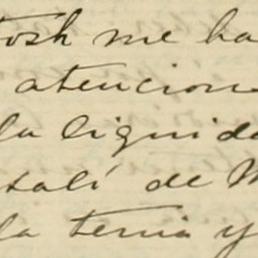 tosh me ha
atencione
la liquida
talí de M
la tenia y